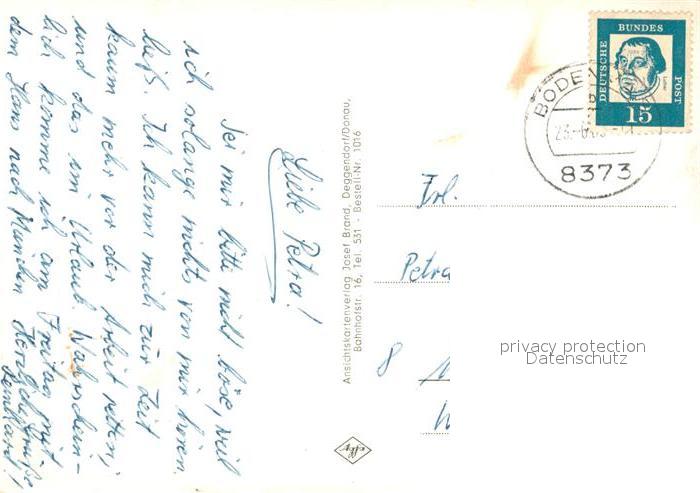 Liebe Petra!
Sei mir bitte nicht böse, weil
ich solange nichts von mir hören
ließ. Ich kann mich zur Zeit
kaum mehr vor der Arbeit retten,
und das im Urlaub. Wahrschein-
lich komme ich am Freitag mit
dem Hans nach München
Herzliche Grüße
Ansichtskartenverlag Josef Brand, Deggendorf/Donau,
Bahnhofstr. 16, Tel. 531 - Bestell-Nr. 1016
Agfa
DEUTSCHE
BUNDES
POST
Luther
15
8373
Frl.
Petra
8
privacy protection
Datenschutz